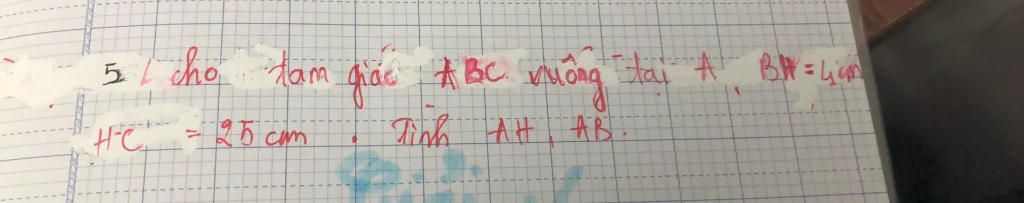 5 / cho tam giác ABC vuông tại A, BH = 4 cm
HC = 25 cm. Tính AH, AB.